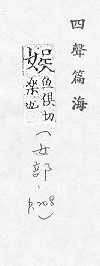 四聲篇海
娛魚俱切
樂也
(女部、p.208)